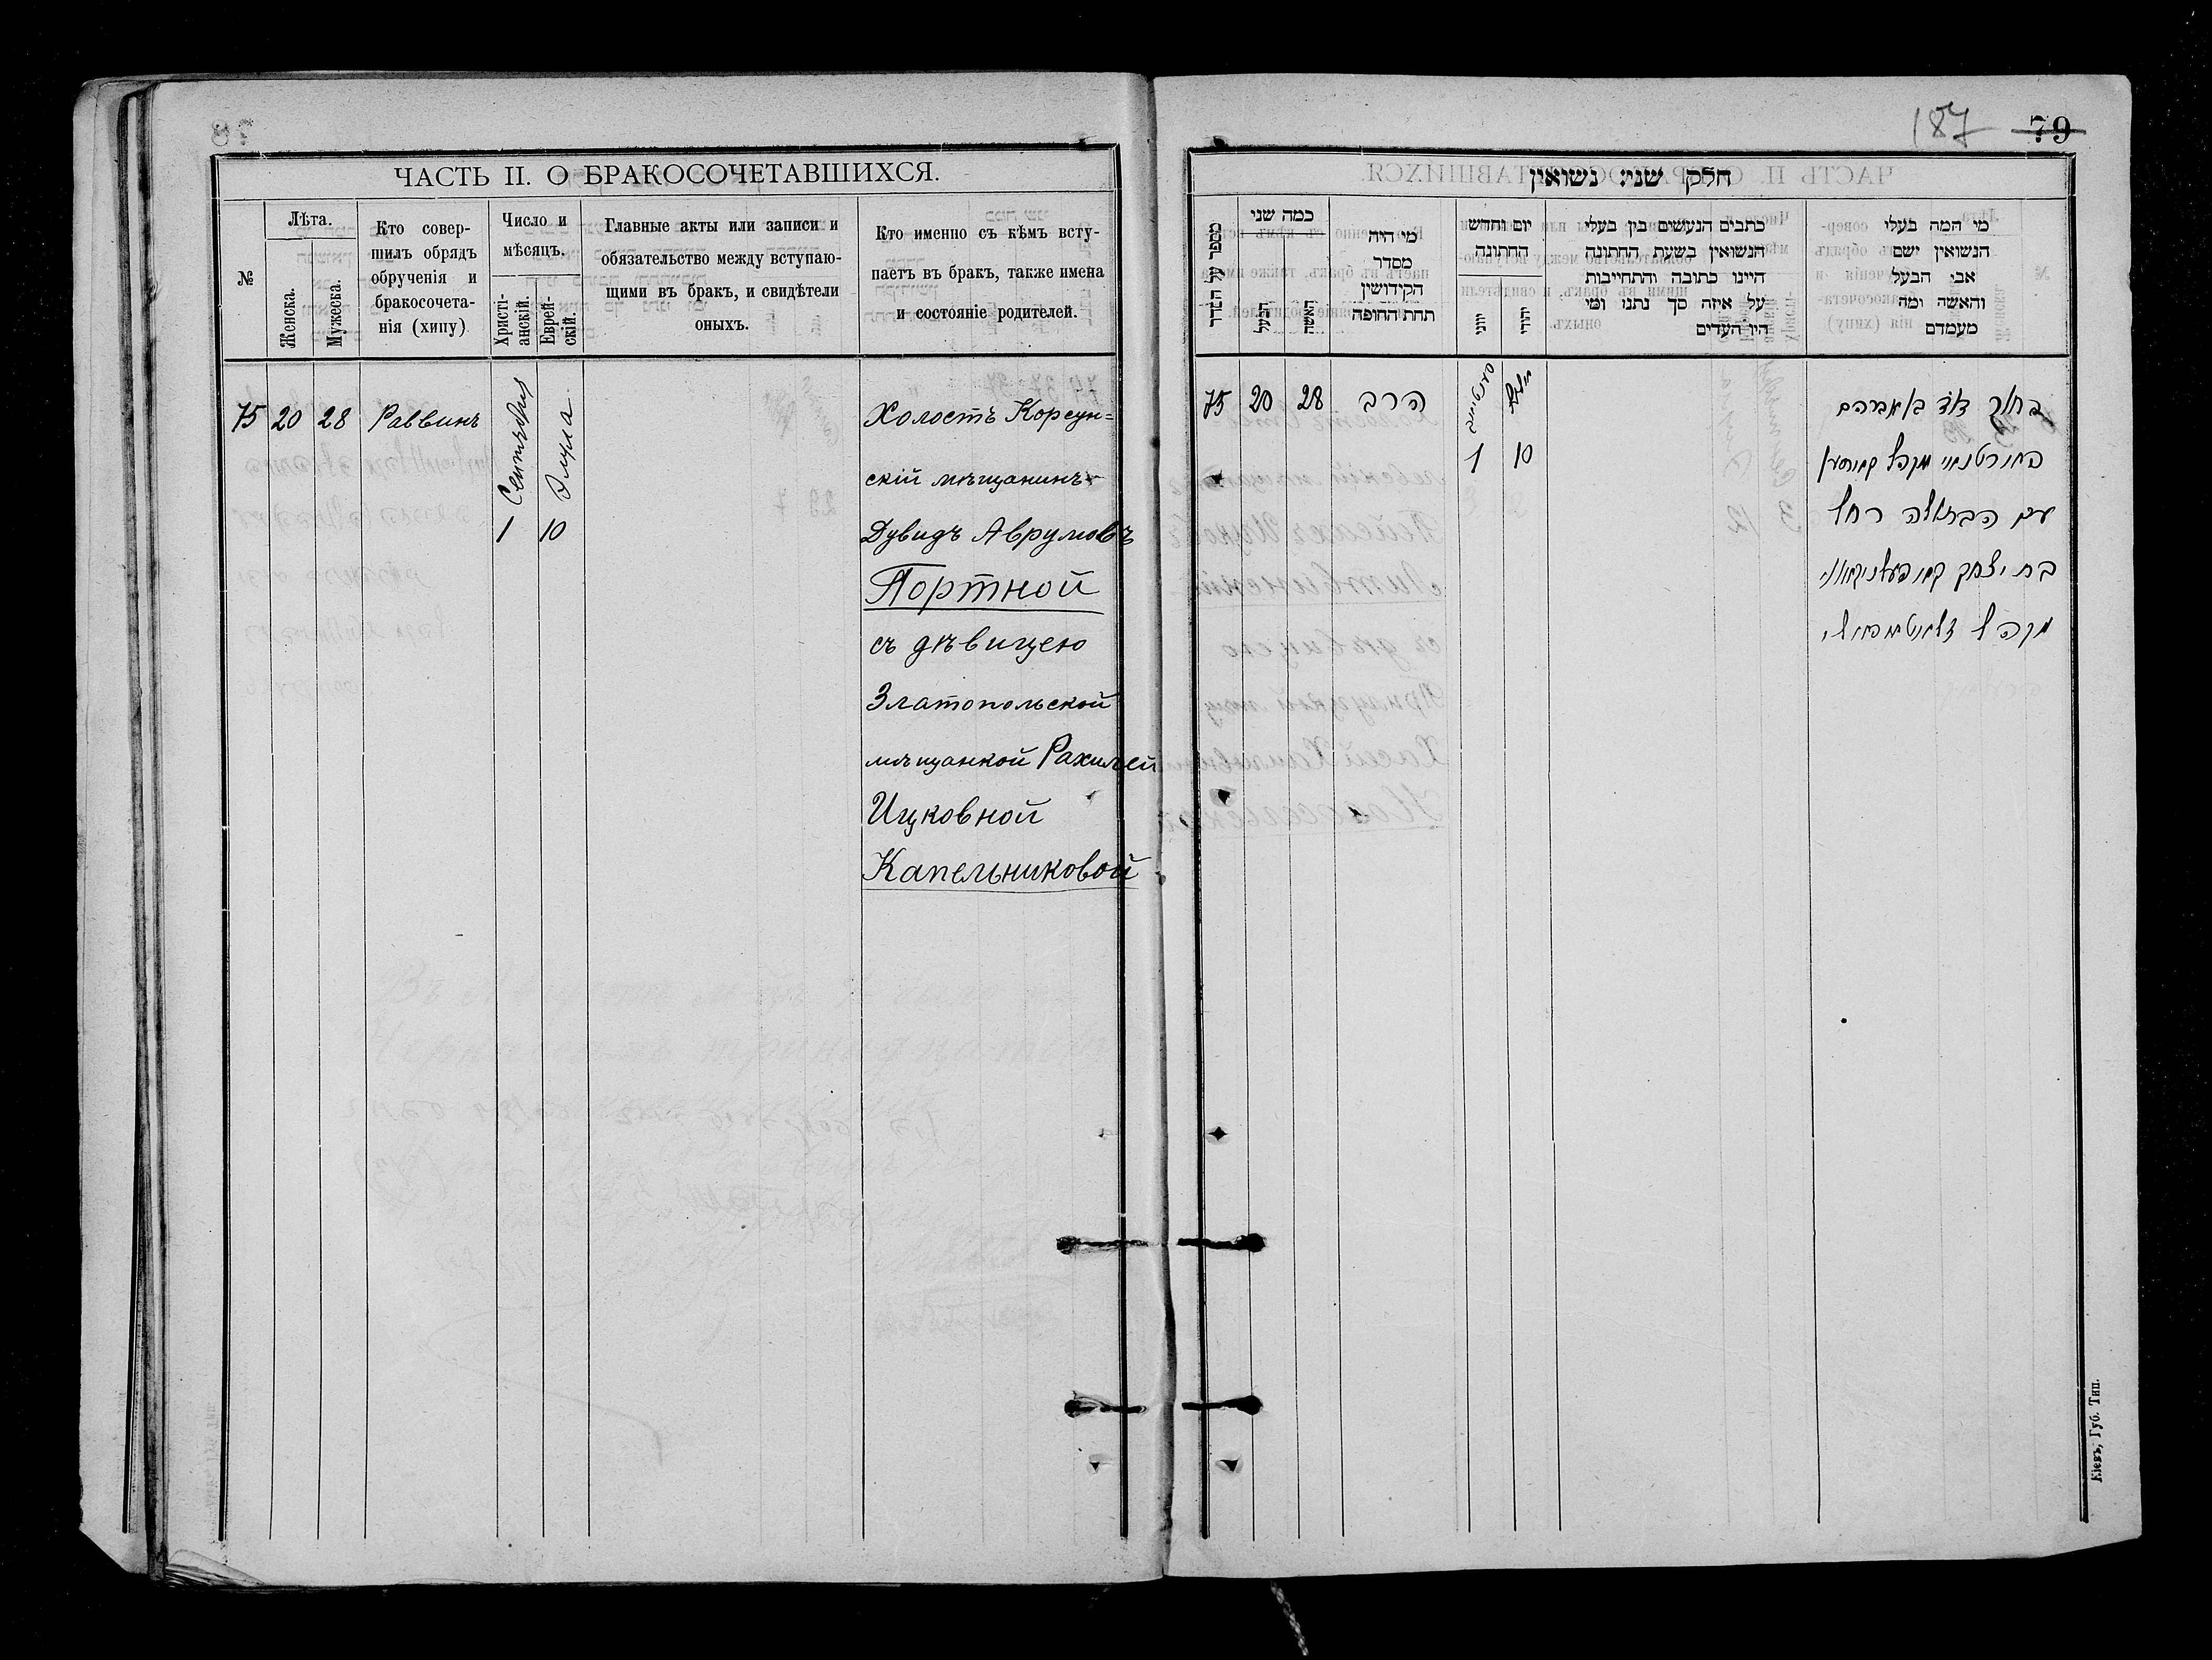 ЧАСТЬ II. О БРАКОСОЧЕТАВШИХСЯ.
№
Лѣта.
Женска.
Мужеска.
Кто совер-
шилъ обрядъ
обрученія и
бракосочета-
нія (хипу)
Число и
мѣсяцъ.
Христі-
анскій.
Еврей-
скій.
Главные акты или записи и
обязательство между вступаю-
щими въ бракъ, и свидѣтели
оныхъ.
Кто именно съ кѣмъ всту-
паетъ въ бракъ, также имена
и состояніе родителей.
75 20 28 Раввинъ
Сентября
1
Элула
10
Холостъ Корсун=
скій мѣщанинъ
Дувидъ Аврумовъ
Портной
съ дѣвицею
Златопольской
мѣщанкой Рахилей
Ицковной
Капельниковой
187 79
חלק שני: נשואין
מספר על הסדר
כמה שני
הבעל
האשה
מי היה
מסדר
הקידושין
תחת החופה
יום וחדש
החתונה
יווני
יהודי
כתבים הנעשים בין בעלי
הנשואין בשעת החתונה
היינו כתובה והתחייבות
על איזה סך נתנו ומי
היו העדים
מי המה בעלי
הנשואין ושם
אבי הבעל
והאשה ומה
מעמדם
75 20 28 הרב
1 10
בחור דוד בן אברהם
עם הבתולה רחל
בת יצחק קאפעלניקאווי
Кіевъ, Губ. Тип.